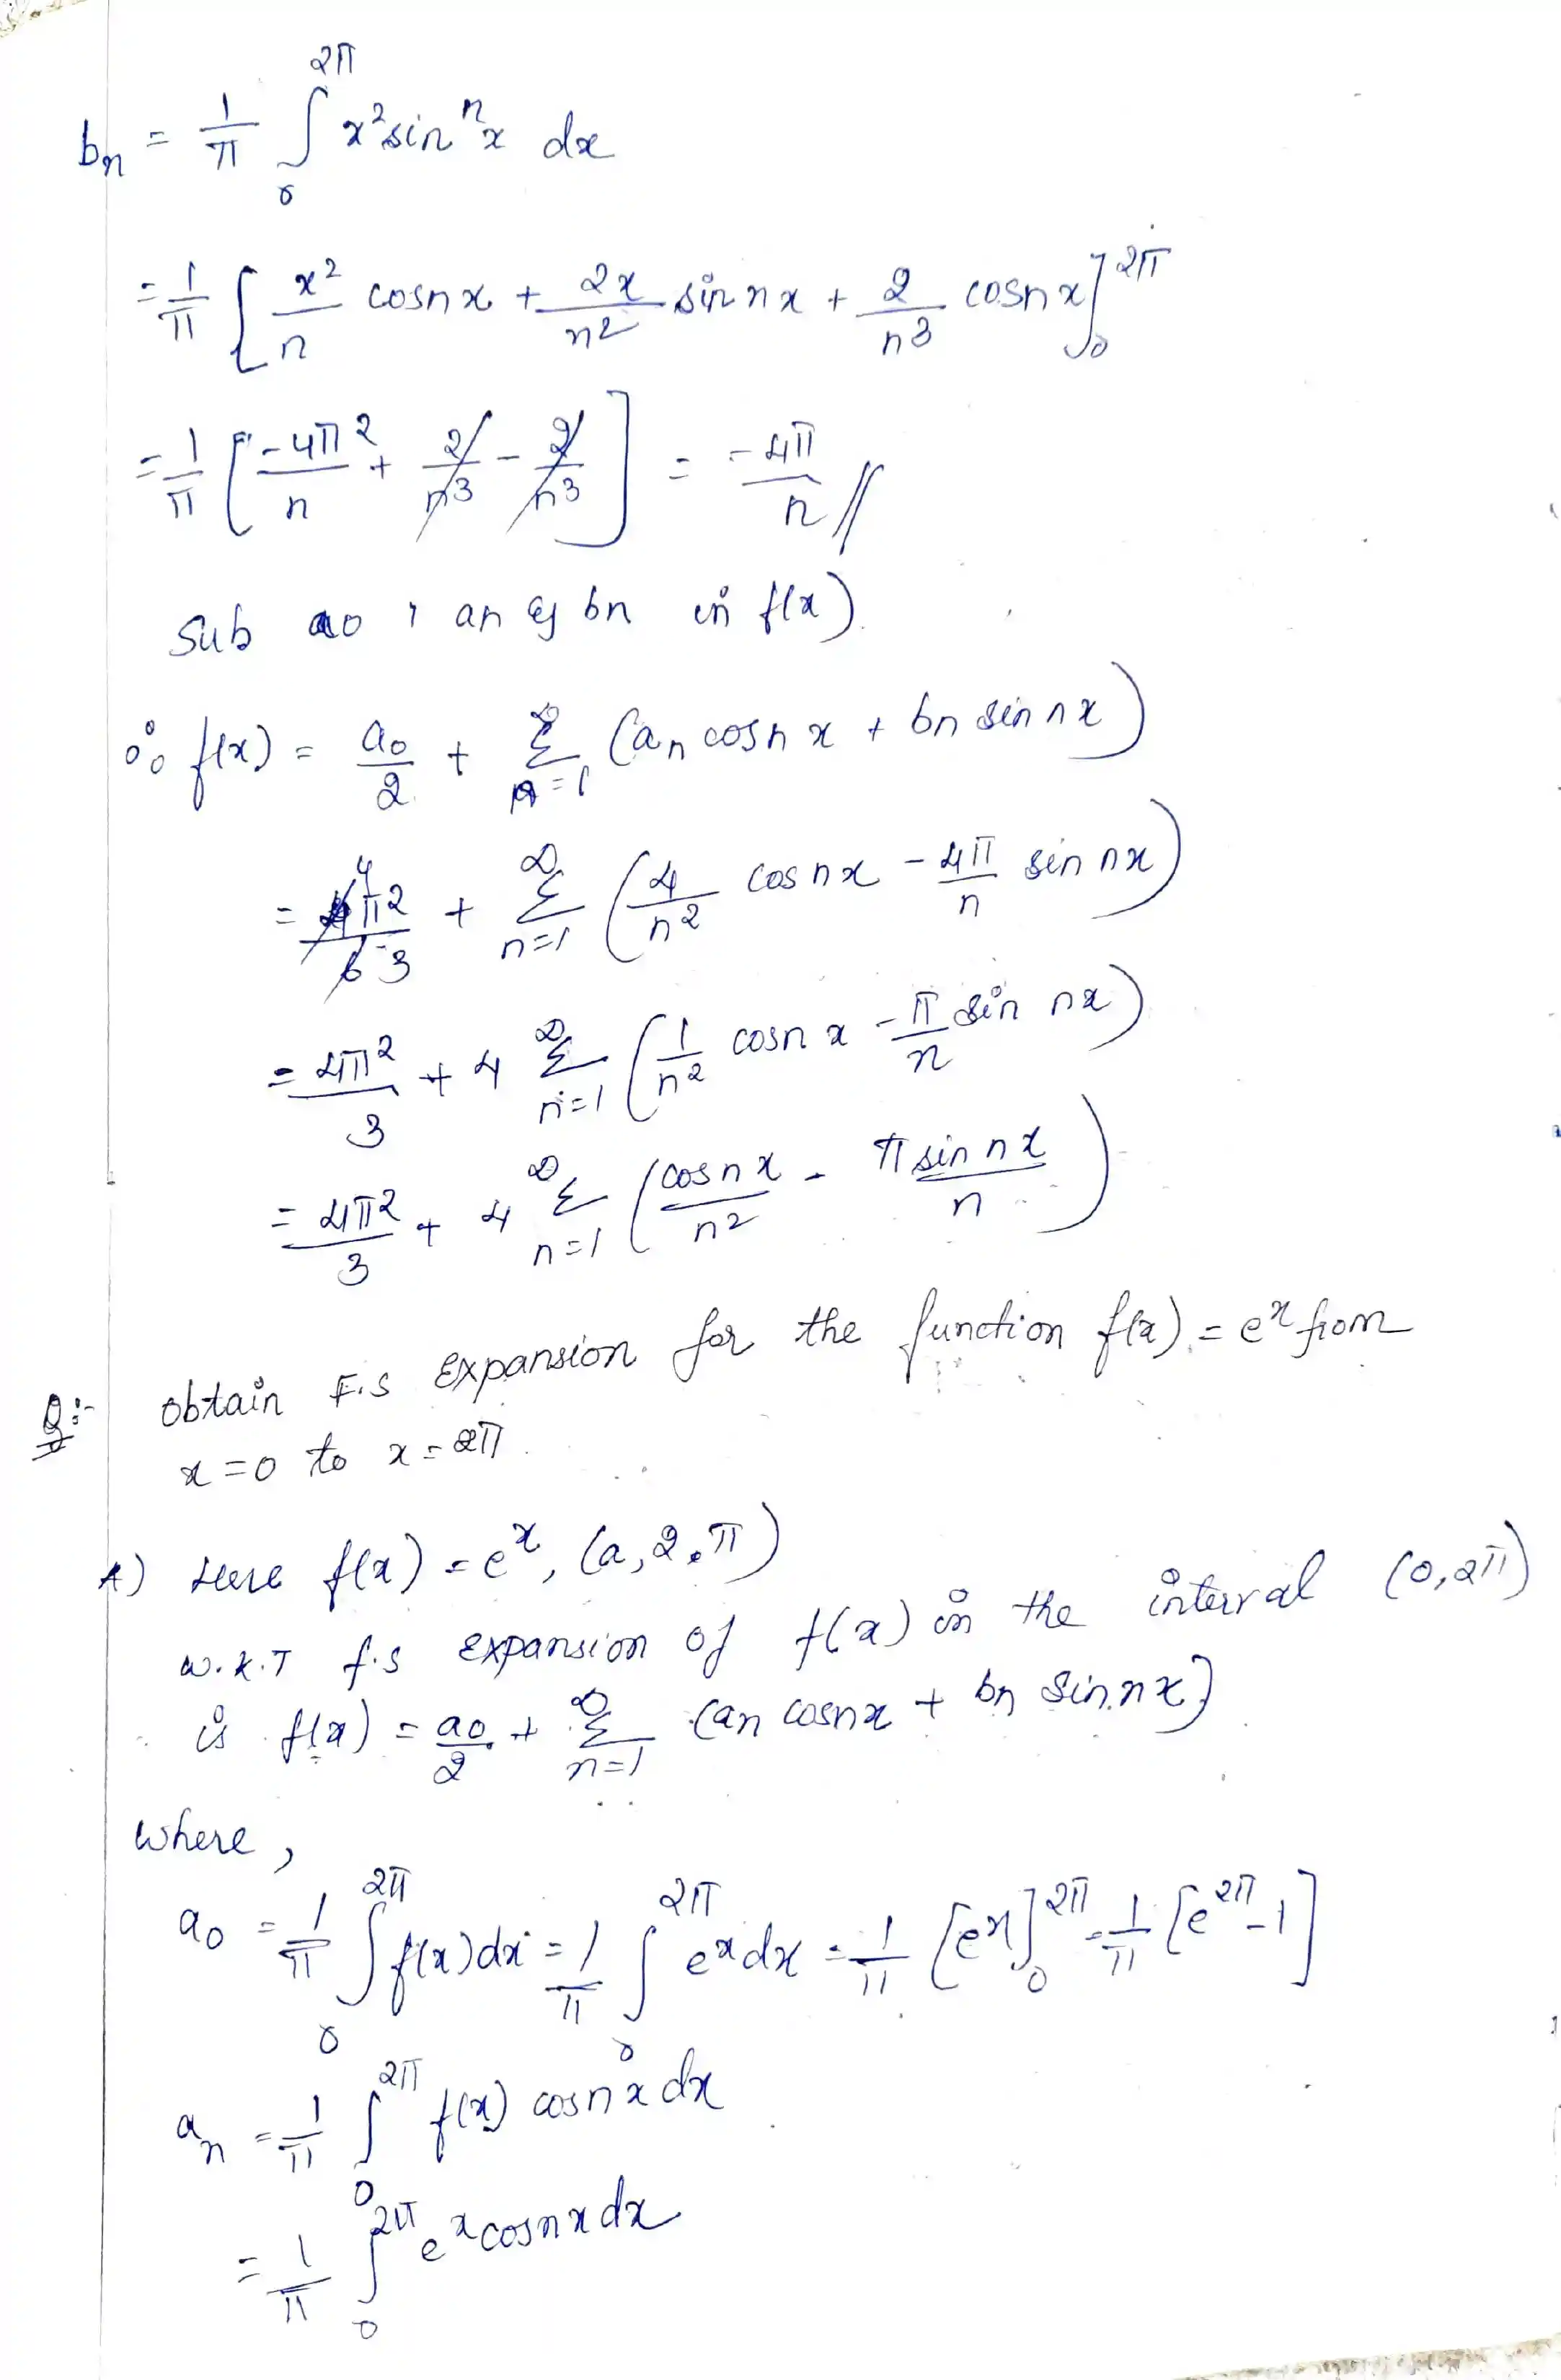 bn = 1/π ∫₀^2π x² sin nx dx
= 1/π [x²/n cosnx + 2x/n² sin nx + 2/n³ cosnx]₀^2π
= 1/π [-4π²/n + 2/n³ - 2/n³] = -4π/n //
Sub a0, an & bn in f(x).
∴ f(x) = a0/2 + Σ n=1 ∞ (an cosnx + bn sin nx)
= 4π²/3 + Σ n=1 ∞ (4/n² cosnx - 4π/n sin nx)
= 4π²/3 + 4 Σ n=1 ∞ (1/n² cosnx - π/n sin nx)
= 4π²/3 + 4 Σ n=1 ∞ (cosnx/n² - π sin nx/n)
Q:- obtain F.S expansion for the function f(x) = e^x from
x=0 to x=2π.
A) Here f(x) = e^x, (a, 2.π)
W.K.T f.s expansion of f(x) in the interval (0, 2π)
is f(x) = a0/2 + Σ n=1 ∞ (an cosnx + bn sin nx)
where,
a0 = 1/π ∫₀^2π f(x)dx = 1/π ∫₀^2π e^x dx = 1/π [e^x]₀^2π = 1/π [e^2π - 1]
an = 1/π ∫₀^2π f(x) cosnx dx
= 1/π ∫₀^2π e^x cosnx dx